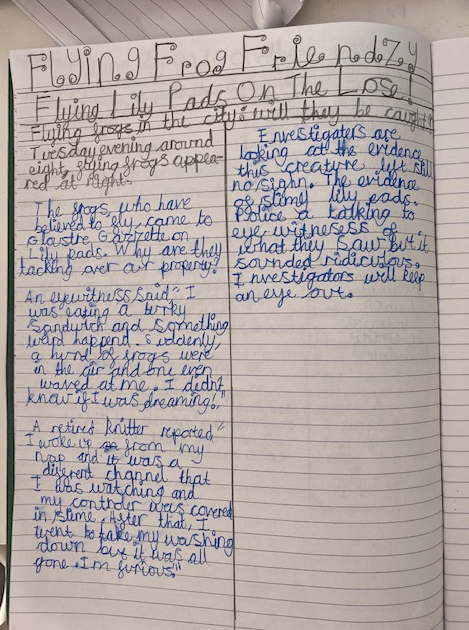 Flying Frog Friendzy
Flying Lily Pads On The Lose!
Flying frogs in the city: will they be caught?
Tuesday evening around
eight, flying frogs appea-
red at night.
The frogs, who have
believed to fly, came to
Gazzette on
Lily pads. Why are they
tacking over our property?
An eyewitness said " I
was eating a turky
Sandwich and something
weird happend. Suddenly,
a hurd of frogs were
in the air and one even
waved at me. I didnt
know if I was dreaming!"
A retired knitter reported "
I woke up from my
nap and it was a
diferent channel that
I was watching and
my controler was covered
in slime. After that, I
went to take my washing
down but it was all
gone. I'm furious."
Envestigaters are
looking at the evidence
this creature left still
no sighn. The evidence
of slimy lily pads.
Police a talking to
eye witnesess of
what they saw but it
sounded ridiculous.
Investigators will keep
an eye out.